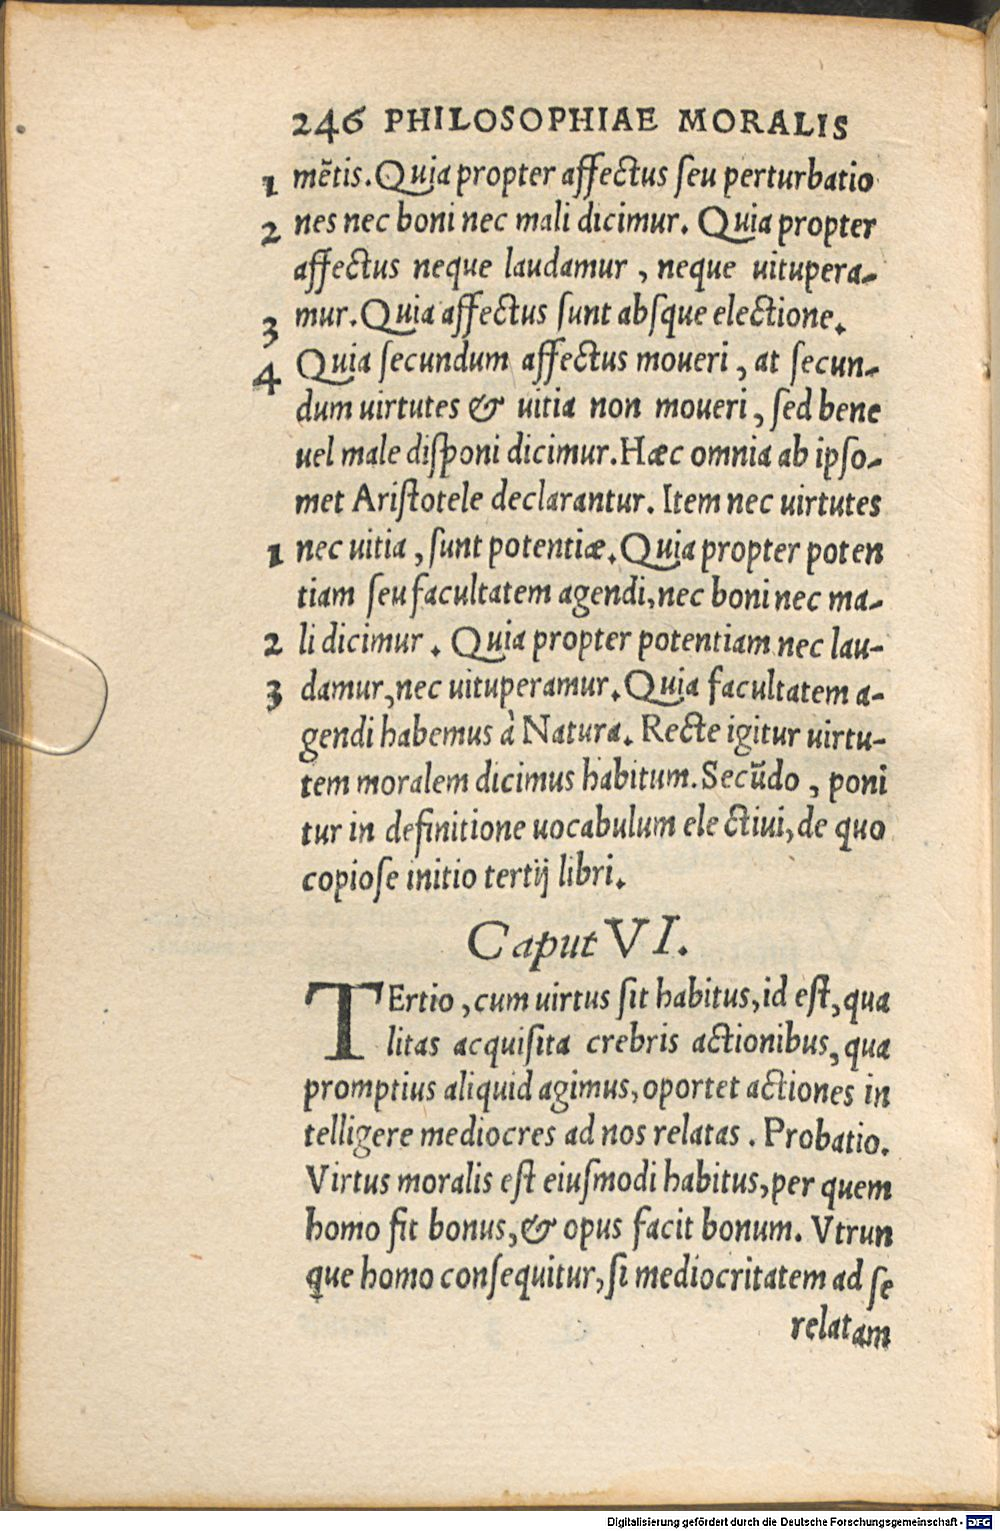 246 PHILOSOPHIAE MORALIS
1 mẽtis. Quia propter affectus seu perturbatio
2 nes nec boni nec mali dicimur. Quia propter
affectus neque laudamur, neque uitupera-
3 mur. Quia affectus sunt absque electione.
4 Quia secundum affectus moueri, at secun-
dum uirtutes & uitia non moueri, sed bene
uel male disponi dicimur. Hæc omnia ab ipso-
met Aristotele declarantur. Item nec uirtutes
1 nec uitia, sunt potentiæ. Quia propter poten
tiam seu facultatem agendi, nec boni nec ma-
2 li dicimur. Quia propter potentiam nec lau-
3 damur, nec uituperamur. Quia facultatem a-
gendi habemus à Natura. Recte igitur uirtu-
tem moralem dicimus habitum. Secũdo, poni
tur in definitione uocabulum electiui, de quo
copiose initio tertij libri.
Caput VI.
TErtio, cum uirtus sit habitus, id est, qua
litas acquisita crebris actionibus, qua
promptius aliquid agimus, oportet actiones in
telligere mediocres ad nos relatas. Probatio.
Virtus moralis est eiusmodi habitus, per quem
homo fit bonus, & opus facit bonum. Vtrun
que homo consequitur, si mediocritatem ad se
relatam
Digitalisierung gefördert durch die Deutsche Forschungsgemeinschaft - DFG